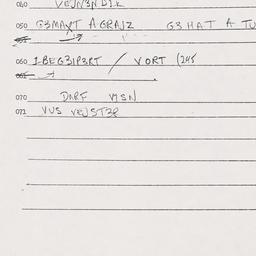 040 VEJN3NDIK
050 G3MAYT A GRAJZ G3 HAT A TU
060 1-BEG3IP3RT / VORT (245
070 DARF VISN
071 VUS VEJST3P